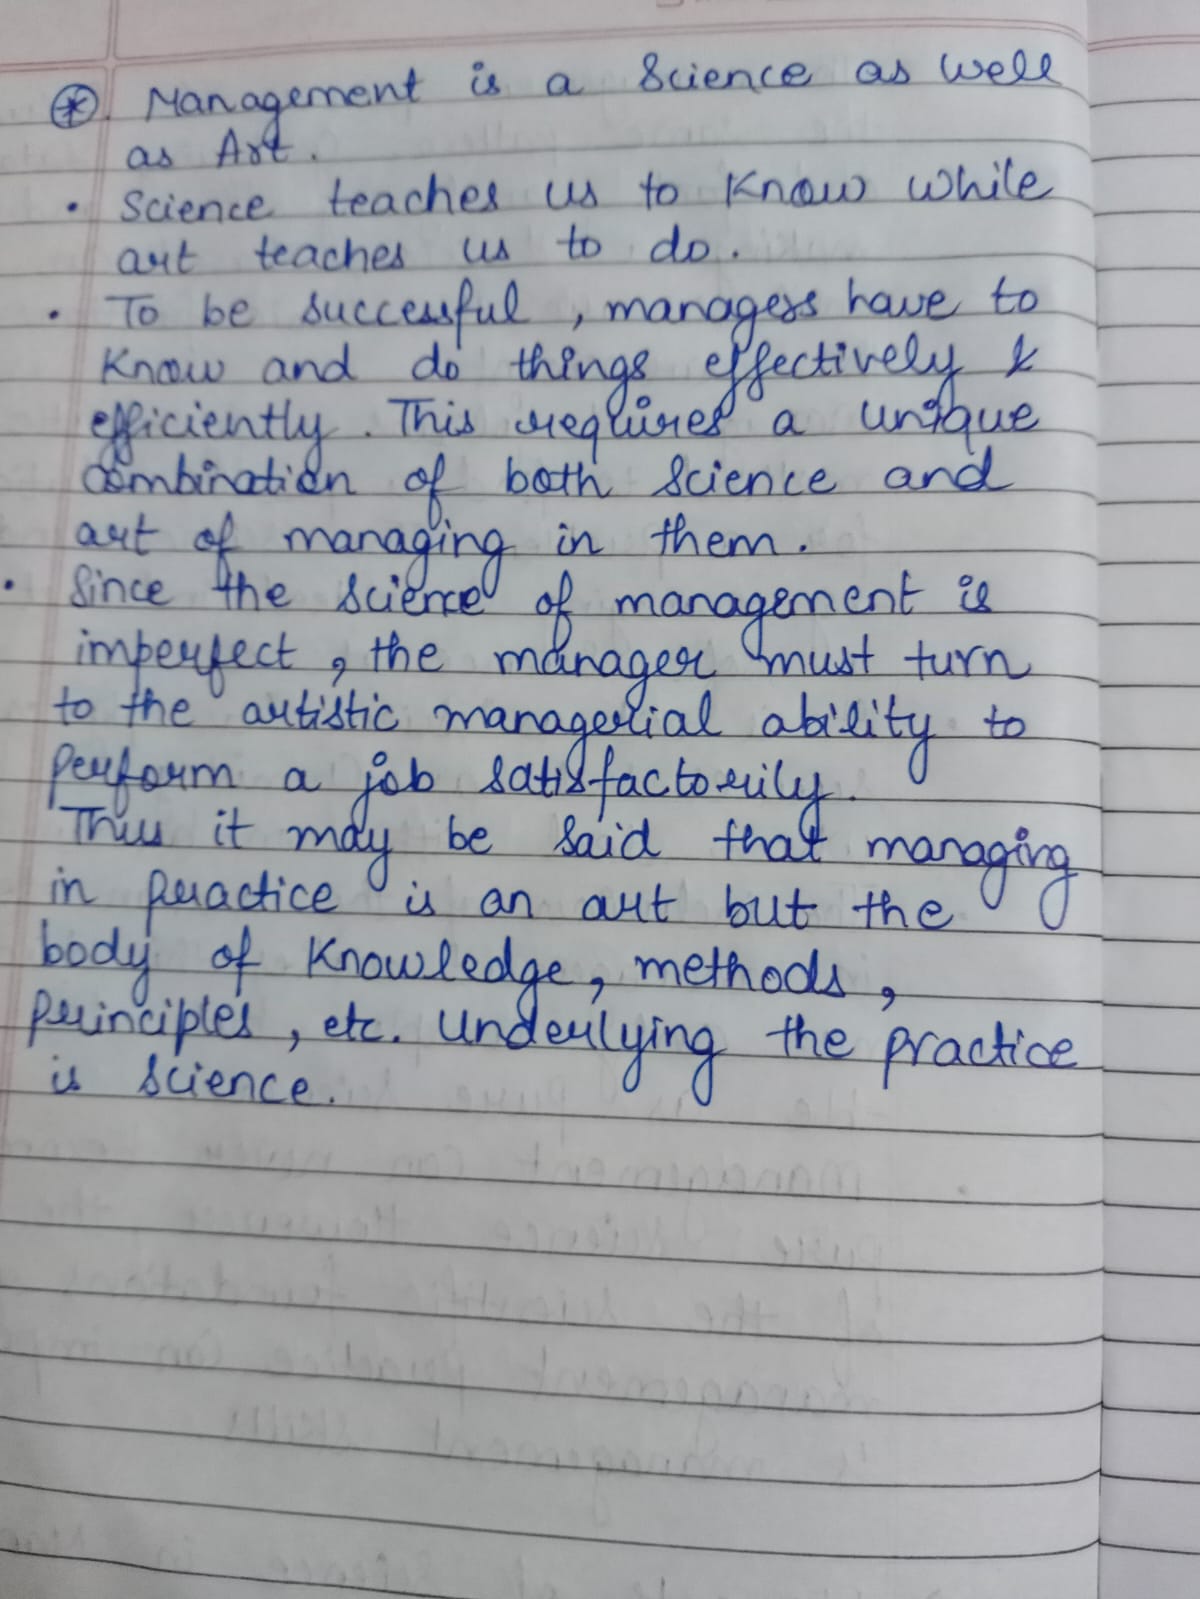 ⊛. Management is a Science as well
as Art.
• Science teaches us to Know while
art teaches us to do.
• To be successful, managers have to
Know and do things effectively &
efficiently. This requires a unique
combination of both Science and
art of managing in them.
• Since the science of management is
imperfect, the manager must turn
to the artistic managerial ability to
perform a job satisfactorily.
Thus it may be said that managing
in practice is an art but the
body of Knowledge, methods,
principles, etc. underlying the practice
is science.